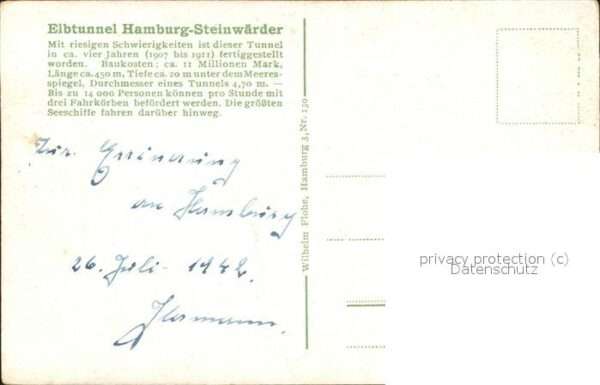 Elbtunnel Hamburg-Steinwärder
Mit riesigen Schwierigkeiten ist dieser Tunnel
in ca. vier Jahren (1907 bis 1911) fertiggestellt
worden. Baukosten: ca. 11 Millionen Mark,
Länge ca. 450 m, Tiefe ca. 20 m unter dem Meeres-
spiegel, Durchmesser eines Tunnels 4,70 m. —
Bis zu 14 000 Personen können pro Stunde mit
drei Fahrkörben befördert werden. Die größten
Seeschiffe fahren darüber hinweg.
Zur Erinnerung
an Hamburg
26. Juli 1942.
Hermann.
Wilhelm Flohe, Hamburg 3, Nr. 130
privacy protection (c)
Datenschutz